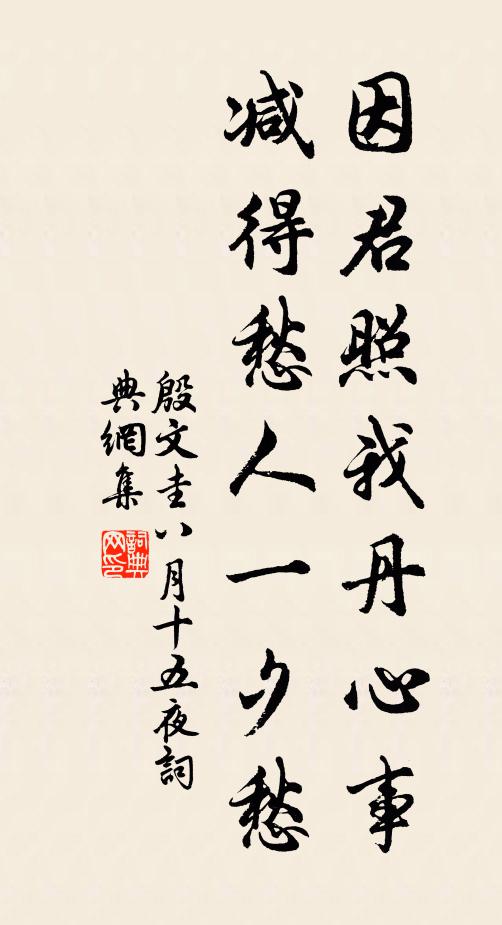 因君照我丹心事
减得愁人一夕愁
殷文圭八月十五夜詞
典網集
詞典
网印